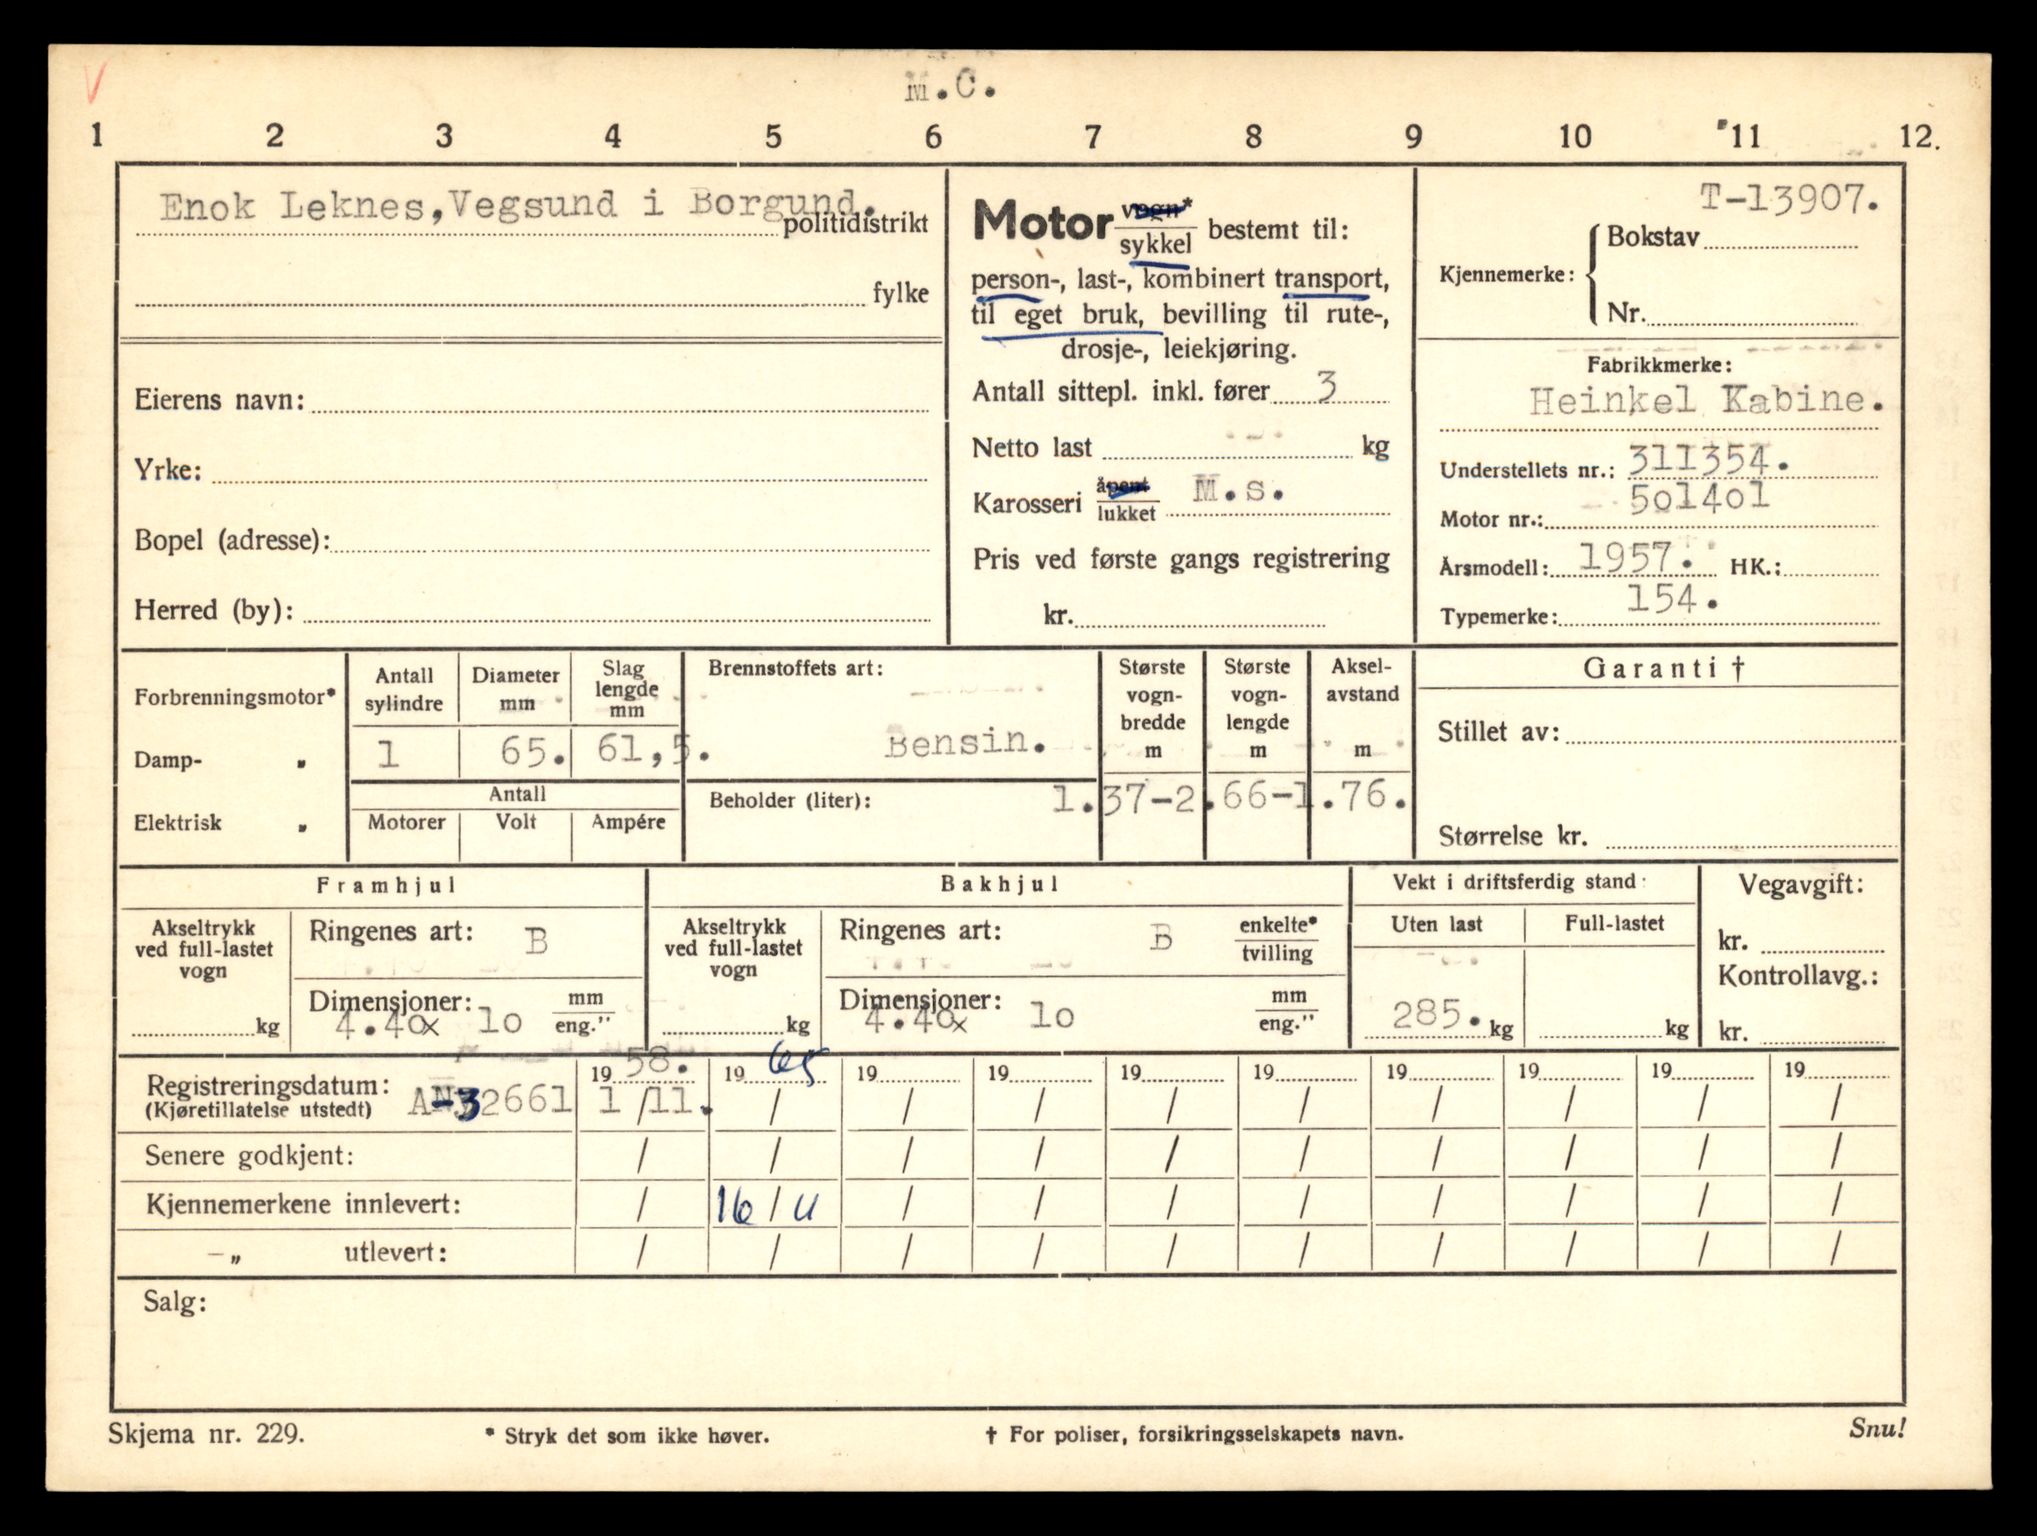 V
M.C.
1 2 3 4 5 6 7 8 9 10 11 12.
Enok Leknes, Vegsund i Borgund.
politidistrikt
fylke
Eierens navn:
Yrke:
Bopel (adresse):
Herred (by):
Motor vogn* / sykkel bestemt til:
person-, last-, kombinert transport,
til eget bruk, bevilling til rute-,
drosje-, leiekjøring.
Antall sittepl. inkl. fører 3
Netto last kg
Karosseri åpent / lukket M.s.
Pris ved første gangs registrering
kr.
T-13907.
Kjennemerke: Bokstav
Nr.
Fabrikkmerke:
Heinkel Kabine.
Understellets nr.: 311354.
Motor nr.: 501401
Årsmodell: 1957. HK.:
Typemerke: 154.
Forbrenningsmotor*
Damp- "
Elektrisk "
Antall sylindre
Diameter mm
Slag lengde mm
1 65. 61,5.
Antall
Motorer Volt Ampére
Brennstoffets art:
Bensin.
Beholder (liter):
Største vogn-bredde m
Største vogn-lengde m
Aksel-avstand m
1.37-2.66-1.76.
Garanti †
Stillet av:
Størrelse kr.
Framhjul
Akseltrykk ved full-lastet vogn
kg
Ringenes art: B
Dimensjoner: mm / eng."
4.40x 10
Bakhjul
Akseltrykk ved full-lastet vogn
kg
Ringenes art: B enkelte* / tvilling
Dimensjoner: mm / eng."
4.40x 10
Vekt i driftsferdig stand:
Uten last Full-lastet
285. kg kg
Vegavgift:
kr.
Kontrollavg.:
kr.
Registreringsdatum:
(Kjøretillatelse utstedt)
-32661
19 58. 19 65 19 19 19 19 19 19 19 19
1 / 11. / / / / / / / / /
Senere godkjent: / / / / / / / / / /
Kjennemerkene innlevert: / 16 / 11 / / / / / / / /
-„ utlevert: / / / / / / / / / /
Salg:
Skjema nr. 229.
* Stryk det som ikke høver.
† For poliser, forsikringsselskapets navn.
Snu!